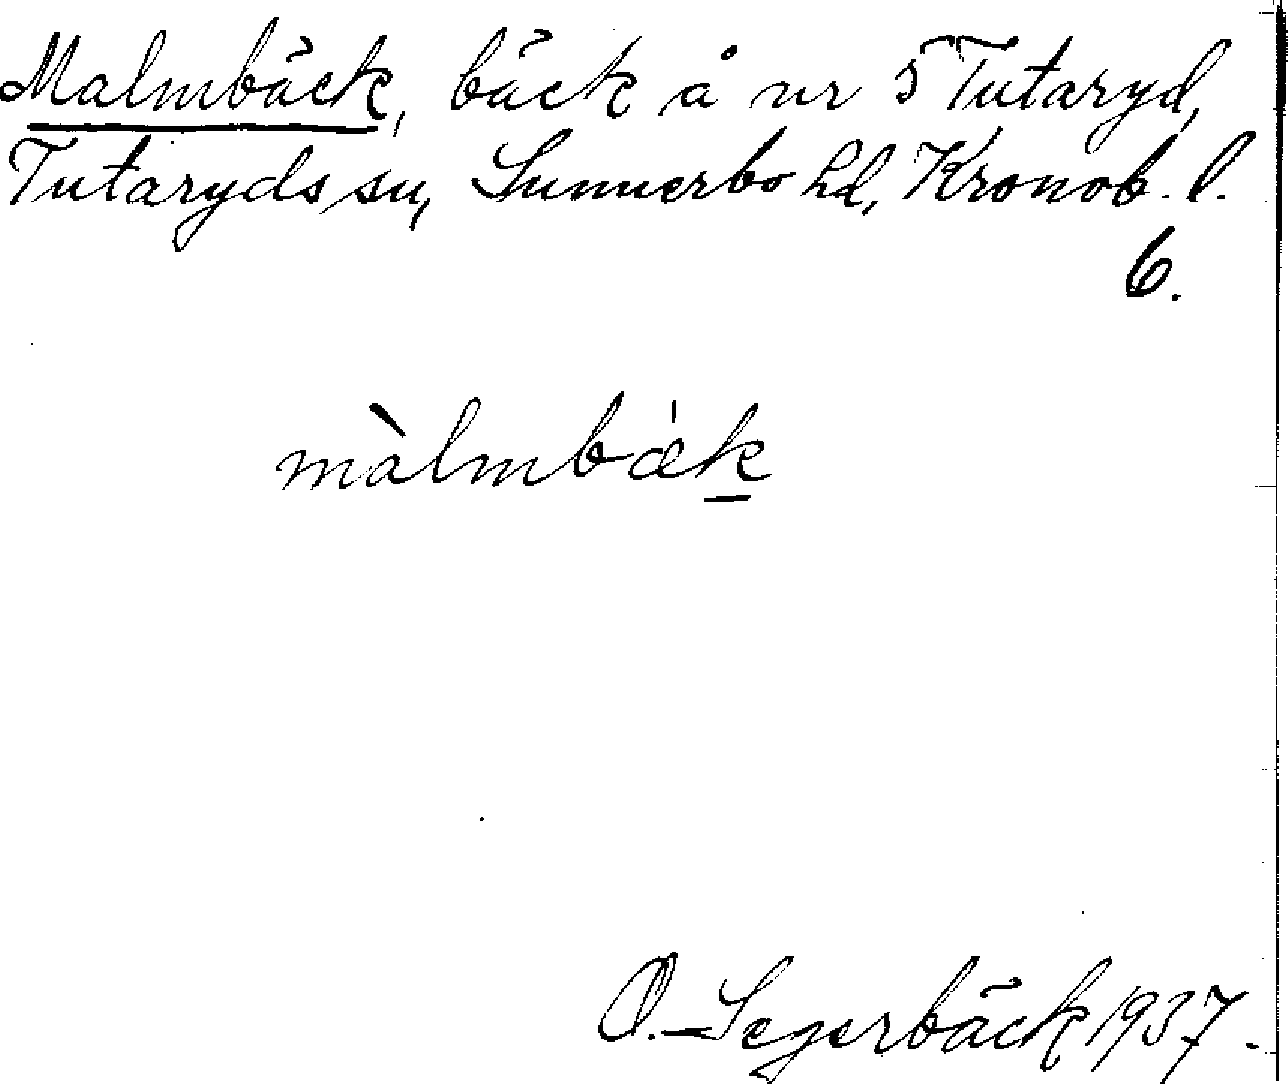 Malmbäck, bäck å nr 5 Tutaryd,
Tutaryds sn, Sunnerbo hd, Kronob. l.
6.
màlmbǽk
O. Segerbäck 1937.